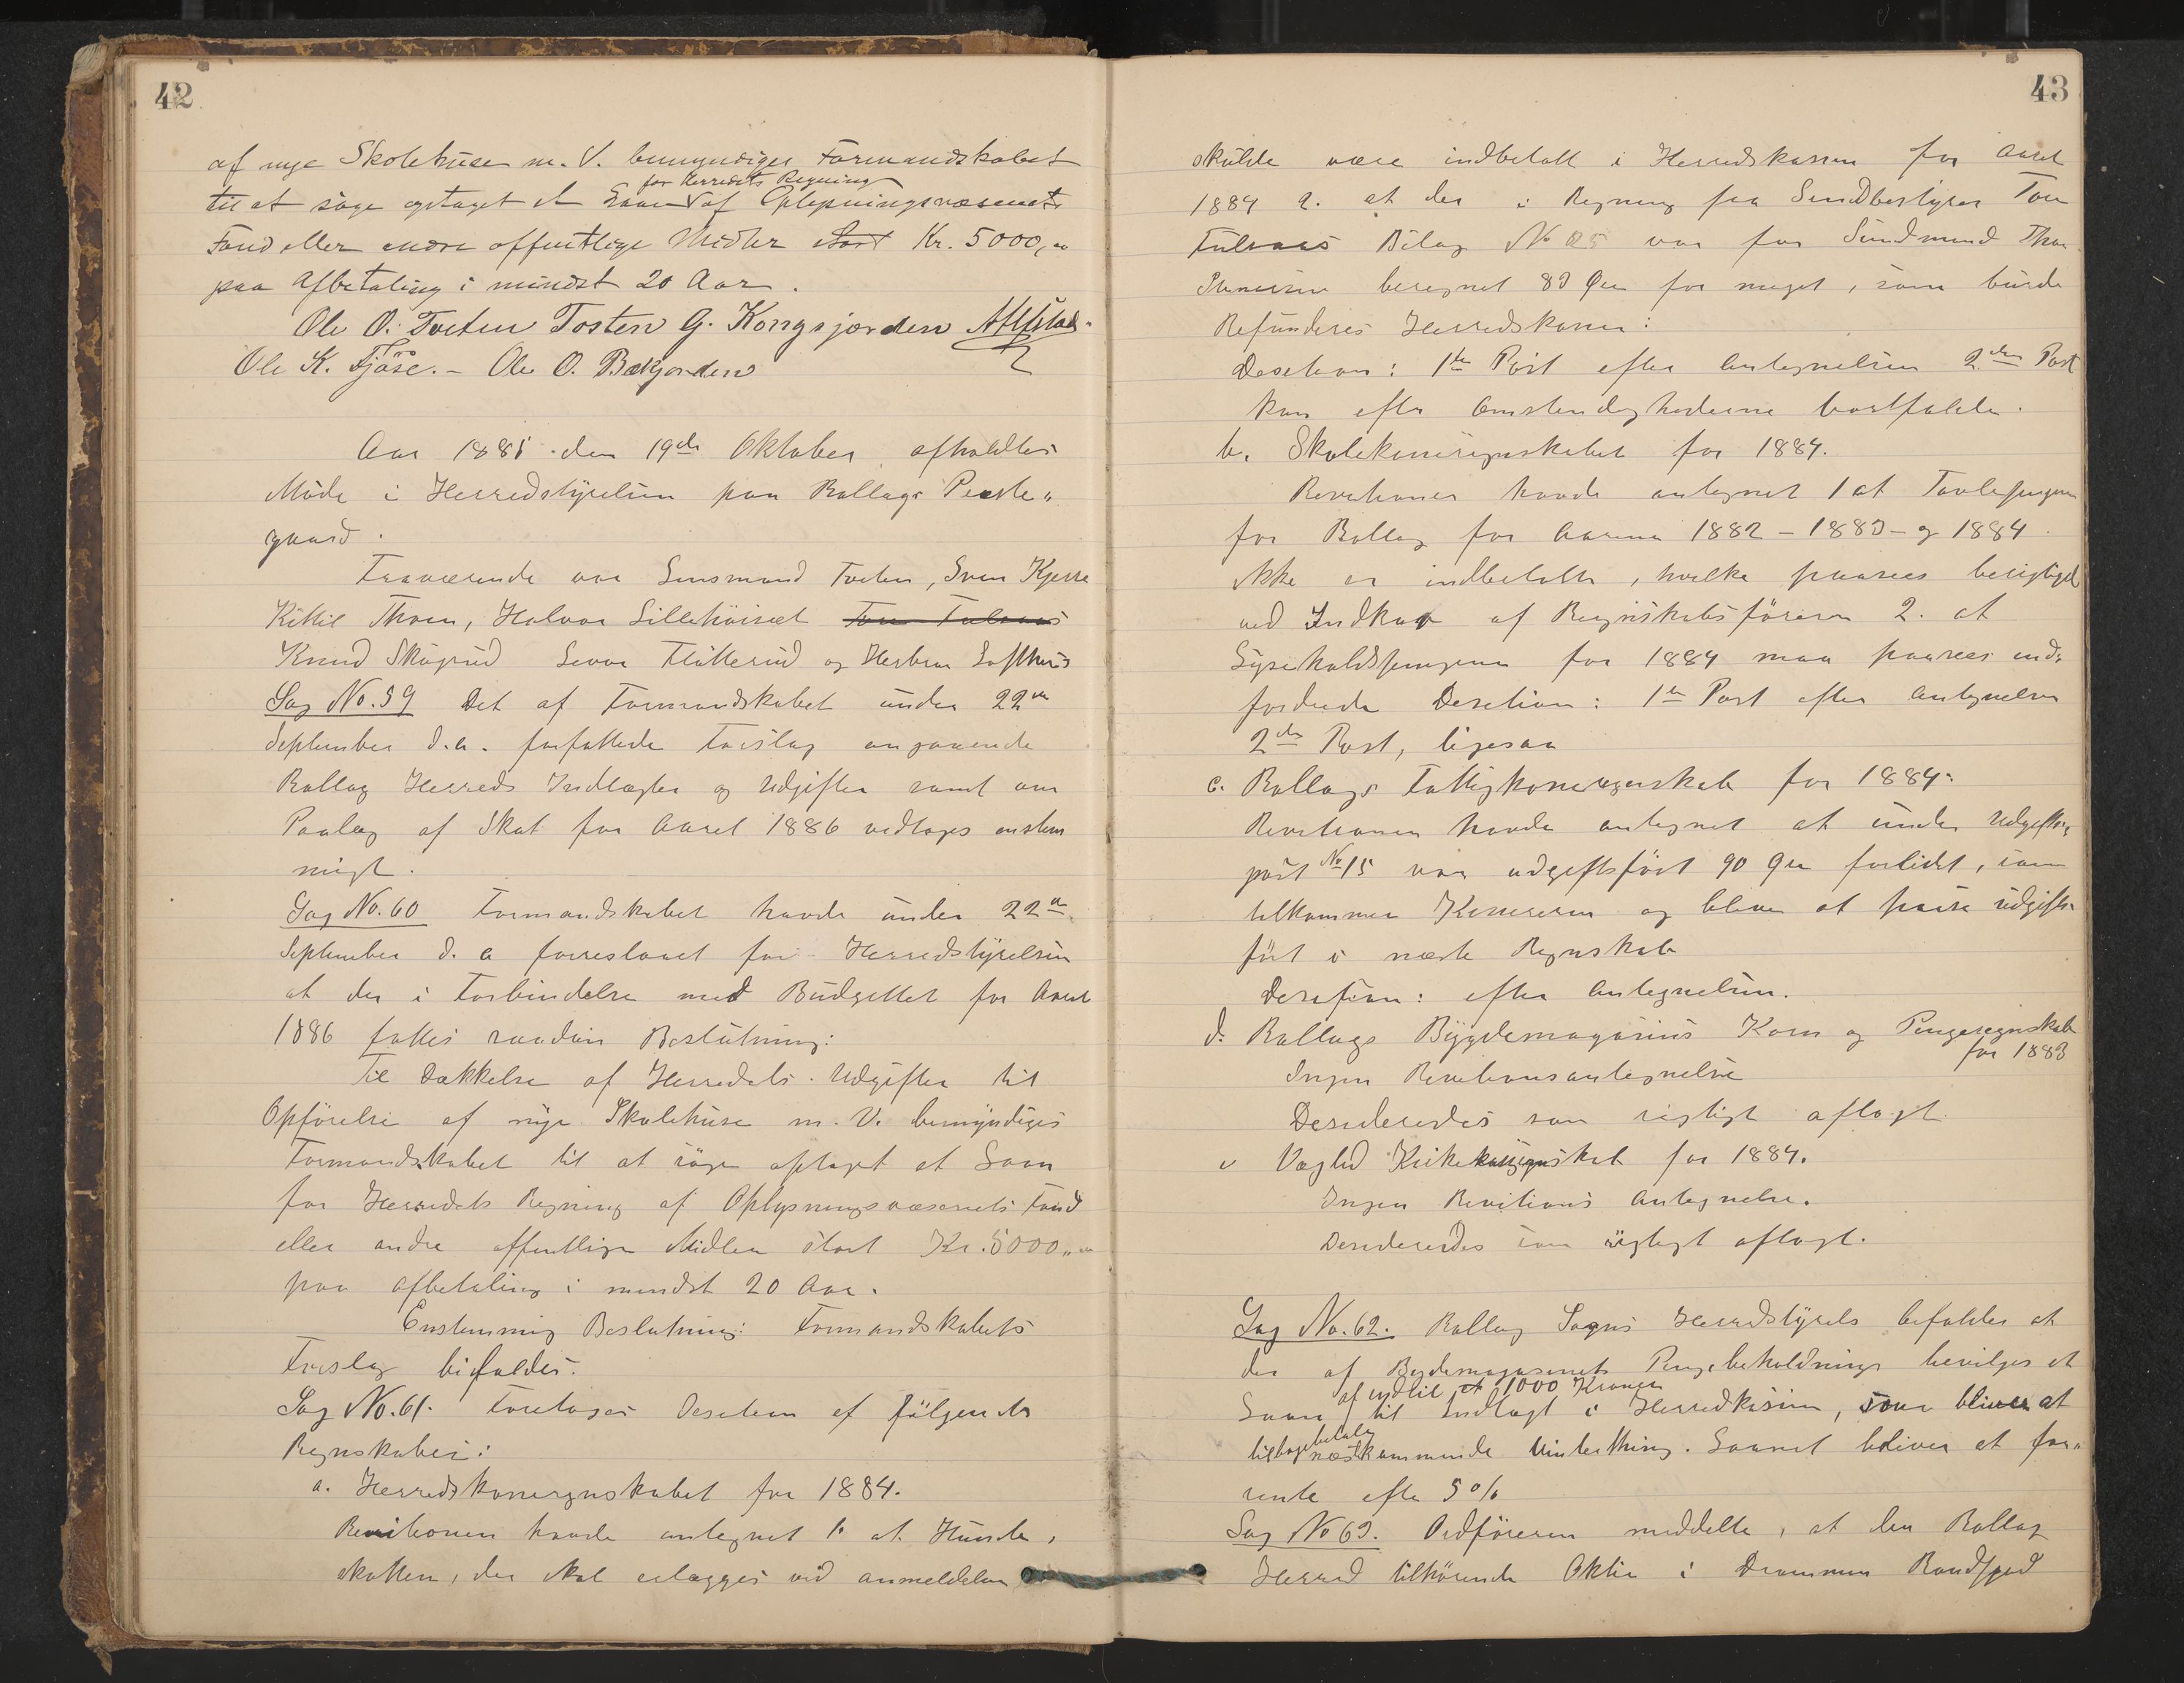 42
af nye Skolehuse m. V. bemyndiges Formandskabet
for Herredets Regning
til at søge optaget et Laan af Oplysningsvæsenets
Fond eller andre offentlige Midler stort Kr. 5000,00
paa Afbetaling i mindst 20 Aar.
Ole O. Tveten Tosten G. Kongsjorden
Ole K. Fjøse. – Ole O. Bækjorden
Aar 1885 den 19de Oktober afholdtes
Møde i Herredstyrelsen paa Rollags Præste-
gaard.
Fraværende var Lensmand Tveten, Sven Kjerre
Kittil Thoen, Halvor Lillehøiset Tore Tulnaas
Knud Skogrud Levor Fløtterud og Herbran Lofthus
Sag No. 59 Det af Formandskabet under 22de
September d.a. forfattede Forslag angaaende
Rollag Herreds Indtægter og Udgifter samt om
Paalæg af Skat for Aaret 1886 vedtoges enstem
migt.
Sag No. 60 Formandskabet havde under 22de
September d. a foreslaaet for Herredstyrelsen
at der i Forbindelse med Budgettet for Aaret
1886 fattes saadan Beslutning:
Til Dækkelse af Herredets Udgifter til
Opførelse af nye Skolehuse m. V. bemyndiges
Formandskabet til at søge optaget et Laan
for Herredets Regning af Oplysningsvæsenets Fond
eller andre offentlige Midler stort Kr. 5000,,00
paa afbetaling i mindst 20 Aar.
Enstemmig Beslutning: Formandskabets
Forslag bifaldes.
Sag No. 61. Foretoges Desition af følgende
Regnskaber:
a. Herredskasseregnskabet for 1884.
Revisionen havde antegnet 1. at Hunde-
skatten, der skal erlægges ved anmeldelsen
43
skulde være indbetalt i Herredskassen for Aaret
1884 2. at der i Regning fra Sundbestyrer Tore
Tulnaas Bilag No 25 var for Sundmand Thor
beregnet 83 Øre for meget, som burde
Refunderes Herredskassen:
Desetion: 1ste Post efter Antegnelsen 2den Post
kan efter Omstendighederne bortfalde.
b. Skolekasseregnskabet for 1884.
Revisionen havde antegnet 1 at Tavlepengene
for Rollag for Aarene 1882 – 1883 – og 1884
ikke er indbetalte, hvilke paasees berigtiget
ved Indkrav af Regnskabsføreren 2. at
Lysehaldspengene for 1884 maa paasees ind-
fordrede Desetion: 1ste Post efter Antegnelsen
2den Post, ligesaa
c. Rollags Fattigkasseregnskab for 1884.
Revisionen havde antegnet at under Udgifts-
post No 15 var udgiftsført 90 Øre forlidet, som
tilkommer Kassereren og bliver at udgifts-
ført i næste Regnskab
Desetion: efter Antegnelsen.
d. Rollags Bygdemagasins Korn og Pengeregnskab
for 1883
Ingen Revisionsantegnelse
Desideredes som rigtigt aflagt
e Veglid Kirkekasseregnskab for 1884.
Ingen Revitions Antegnelse.
Desideredes som rigtigt aflagt.
Sag No. 62. Rollag Sogns Herredstyrels befalder at
der af Bygdemagasinets Pengebeholdninge bevilges et
af indtil 1000 Kroner
Laan til Indlagt i Herredkassen, som bliver at
tilbagebetale
næstkommende Vinterthing. Laanet bliver at for-
rente efter 5 %
Sag No 63. Ordføreren meddelte, at den Rollag
Herred tilhørende Aktie i Drammen Randsfjord